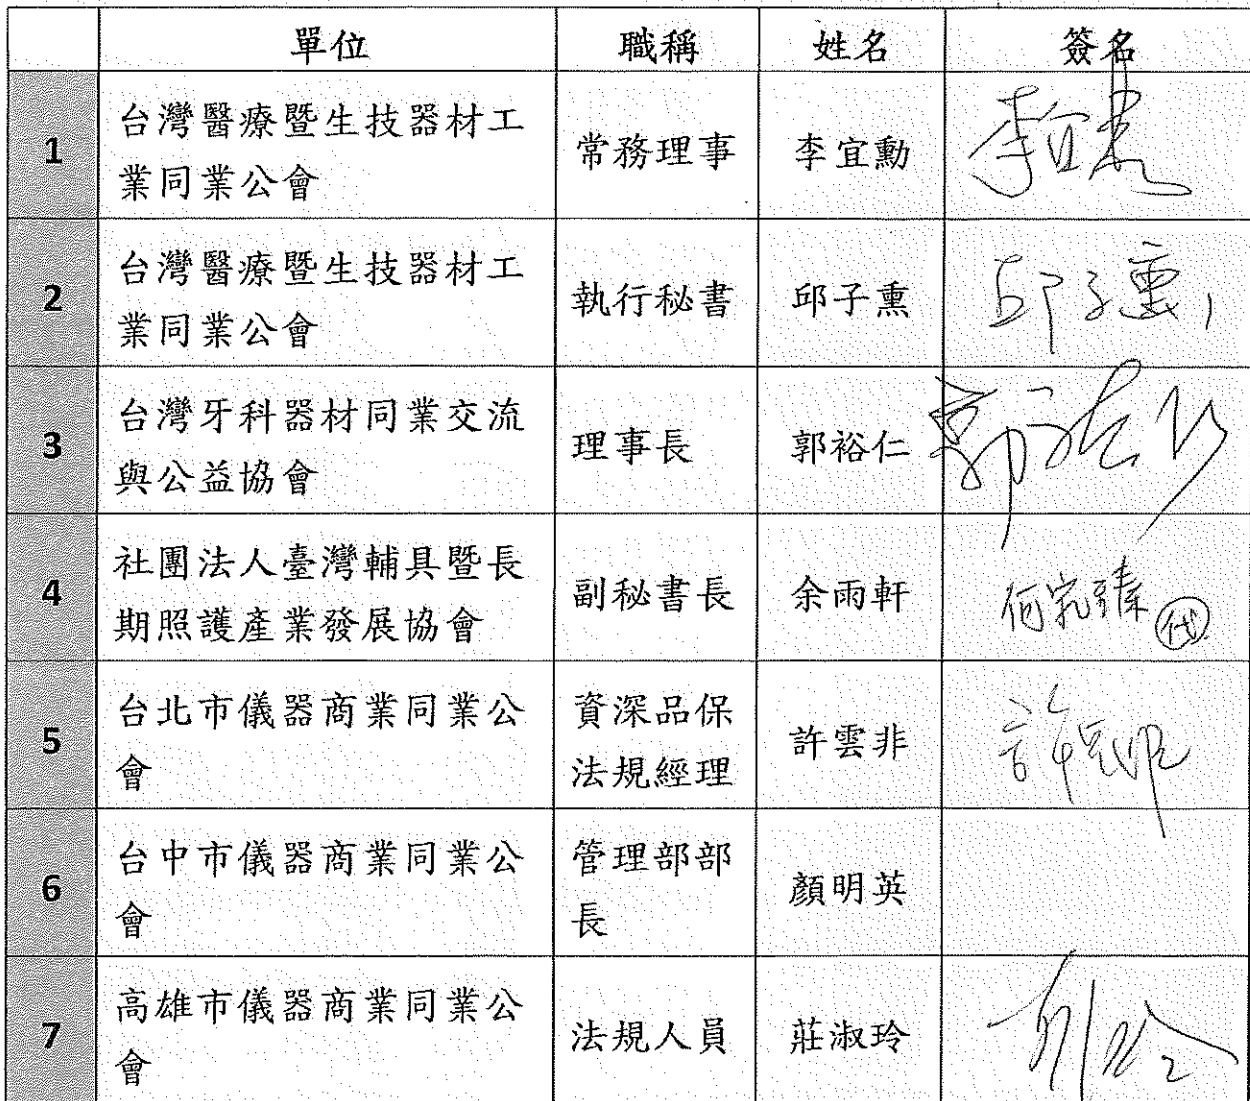 單位 職稱 姓名 簽名
1 台灣醫療暨生技器材工
業同業公會 常務理事 李宜勳
2 台灣醫療暨生技器材工
業同業公會 執行秘書 邱子熏 邱子熏
3 台灣牙科器材同業交流
與公益協會 理事長 郭裕仁 郭裕仁
4 社團法人臺灣輔具暨長
期照護產業發展協會 副秘書長 余雨軒 代
5 台北市儀器商業同業公
會 資深品保
法規經理 許雲非 許雲非
6 台中市儀器商業同業公
會 管理部部
長 顏明英
7 高雄市儀器商業同業公
會 法規人員 莊淑玲